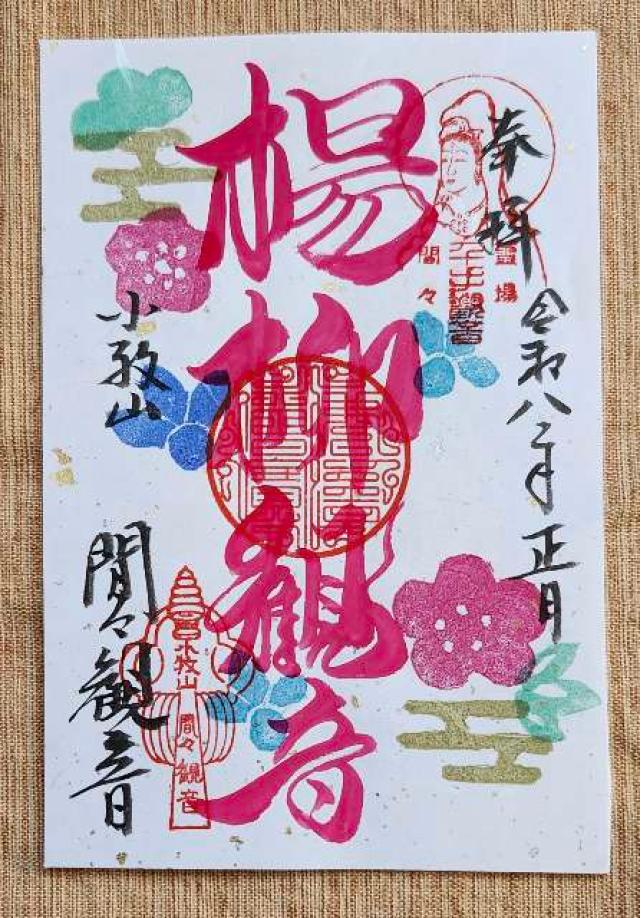 奉拝
令和八年正月
霊場
千手觀音
間々
楊柳観音
小牧山
間々観音
小牧山
間々
観音